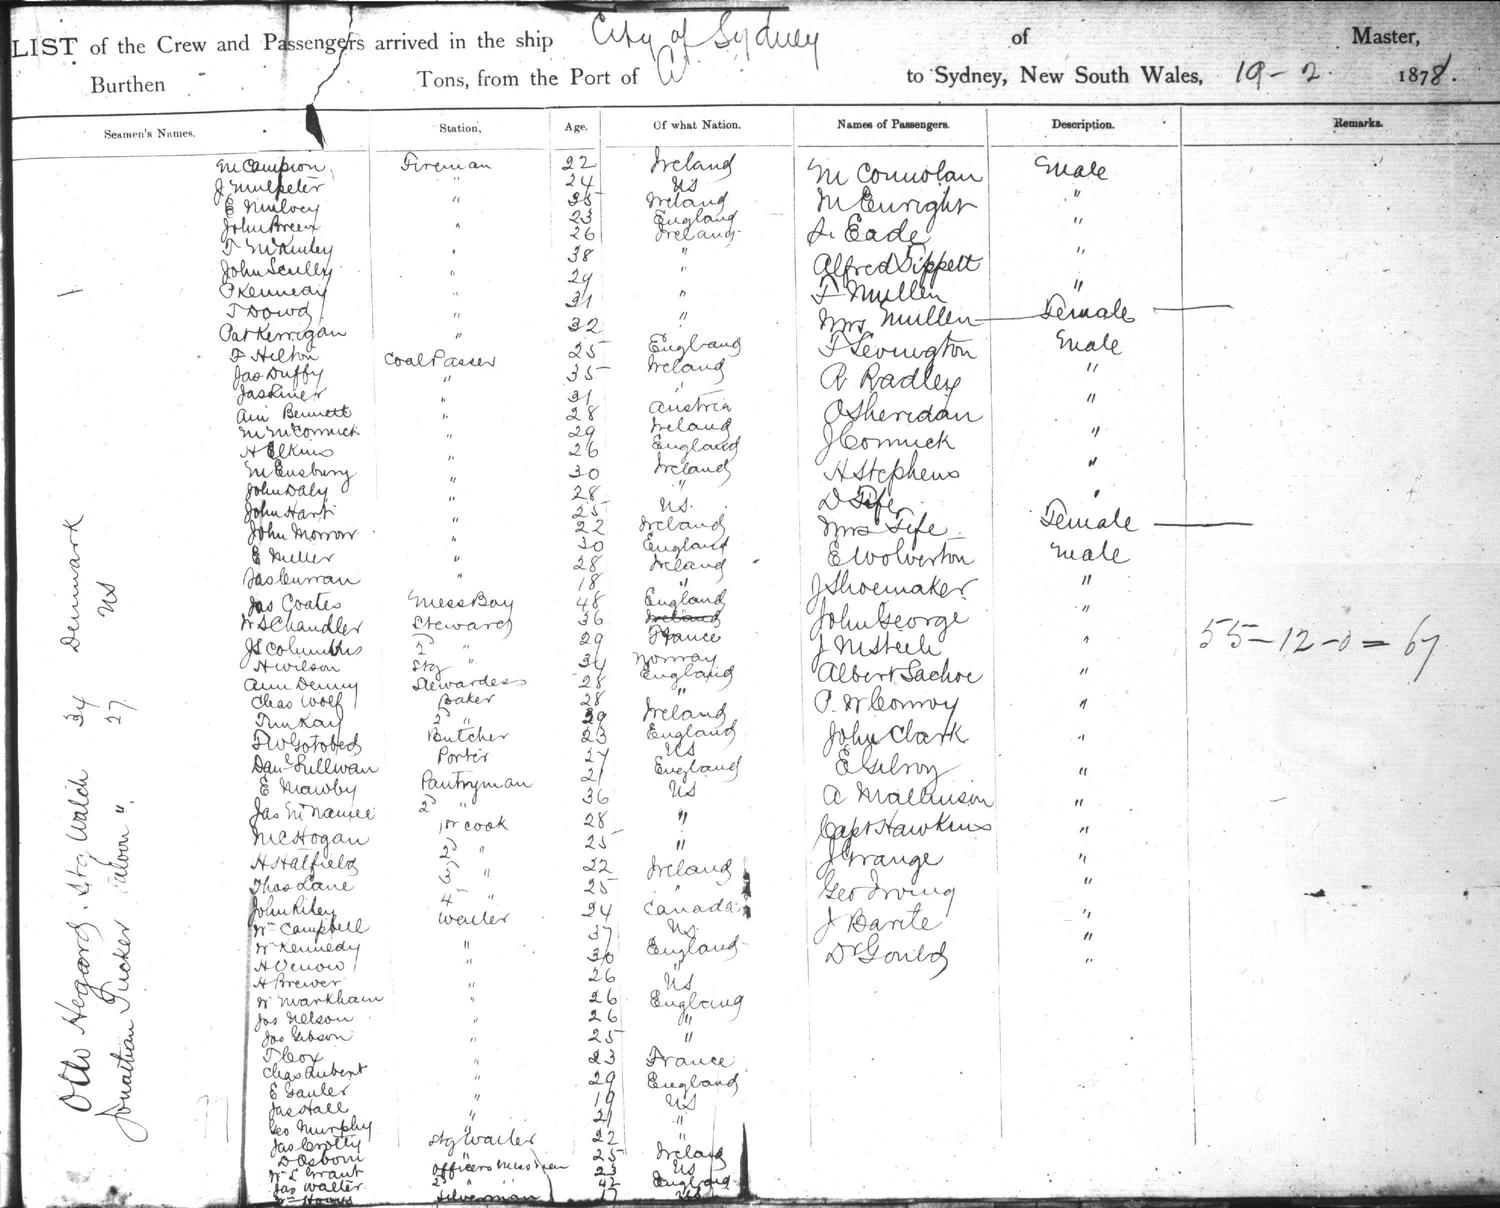 LIST of the Crew and Passengers arrived in the ship City of Sydney of Master,
Burthen Tons, from the Port of to Sydney, New South Wales, 19-2 1878.
Seamen's Names. Station, Age. Of what Nation. Names of Passengers. Description. Remarks.
M Campion Fireman 22 Ireland
J Mulpeter " 24 US
E Mulvey " 35 Ireland
John Breen " 23 England
T McKinley " 26 Ireland
John Scully " 38 "
P Kennedy " 29 "
T Dowd " 31 "
Pat Kerrigan " 32 "
F Hilton Coal Passer 25 England
Jas Duffy " 35 Ireland
Jas Liner " 31 "
Bennett " 28 Austria
M McCormick " 29 Ireland
H Elkins " 26 England
M Ensbury " 30 Ireland
John Daly " 28 "
John Hart " 25 US.
John Morrow " 22 Ireland
E Miller " 30 England
Jas Curran " 28 Ireland
18 "
Jas Coates Mess Boy 48 England
W S Chandler Steward 36 Ireland
JS Columbus 2 " 29 France
H Wilson Stg " 34 Norway
Ann Denny Stewardess 28 England
Chas Wolf Baker 28 "
Tim Kay 2 " 29 Ireland
T W Gotobed Butcher 23 England
Danl Sullivan Porter 27 US
E Mawby Pantryman 21 England
Jas McNamee 2 " 36 US
McHogan 1st cook 28 "
H Halfield 2 " 25 "
Thos Lane 3 " 22 Ireland
John Riley 4 " 25 "
Wm Campbell Waiter 24 Canada
W Kennedy " 37 US
H " 30 England
H Brewer " 26 "
W Markham " 26 US
Jas Nelson " 26 England
Jas Gibson " 25 "
T Cox " 23 "
Chas Aubert " 29 France
E Gauler " 19 England
Jas Hall " 21 US
Geo Murphy " 22 "
Jas Crotty Stg Waiter 25 "
D Osborn " 23 Ireland
W L Grant Officers Messman 42 US
Jas Walter 2 " 17 England
Silverman
M Connolan Male
M Enright "
Eade "
Alfred Sippett "
F Mullen "
Mrs Mullen Female
T Levington Male
R Radley "
O Sheridan "
J Cormick "
H Stephens "
D Fife "
Mrs Fife Female
E Wolverton Male
J Shoemaker "
John George "
J McSteele "
Albert Sachse "
P. W Conroy "
John Clark "
E Gilroy "
A Mallinson "
Capt Hawkins "
J Grange "
Geo Irving "
J Barite "
Dr Gould "
55-12-0=67
Otto Hegard. Stg Watch 34 Denmark
Jonathan Tucker Saloon " 27 US